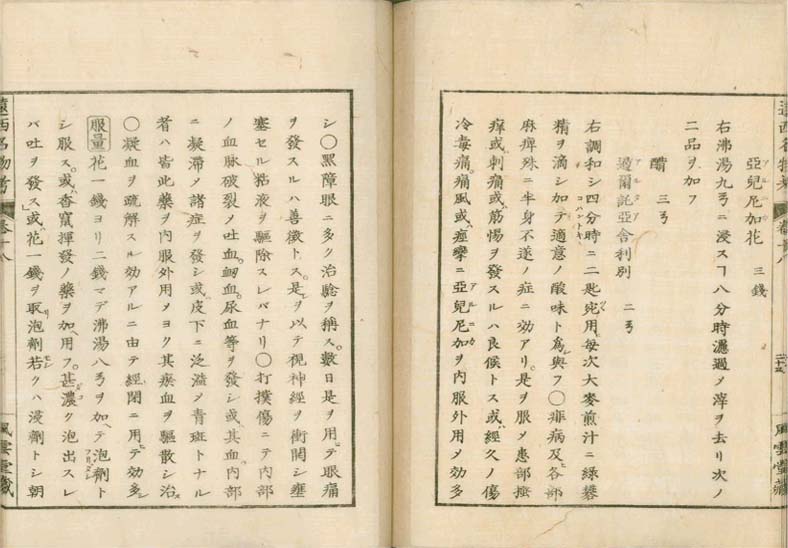 亞兒尼加花 三錢
右沸湯九ヲニ浸スヿ八分時濾過メ滓ヲ去リ次ノ
二品ヲ加フ
醋 三ヲ
遏爾託亞舎利別 二ヲ
右調和シ四分時ニ二匙宛用毎次大麥煎汁ニ緑礬
精ヲ滴シ加テ適意ノ酸味ト爲與フ〇痱病及各部
麻痺殊ニ半身不遂ノ症ニ効アリ是ヲ服メ患部搔
痒或刺痛或筋惕ヲ發スルハ良候トス或經久ノ傷
冷毒痛痛風或痙攣ニ亞兒尼加ヲ内服外用メ効多
シ〇黑障眼ニ多ク治驗ヲ稱ス數日是ヲ用テ眼痛
ヲ發スルハ善徴トス是ヲ以テ視神經ヲ衝開シ壅
塞セル粘液ヲ驅除スレバナリ〇打撲傷ニテ内部
ノ血脉破裂メ吐血衂血尿血等ヲ發シ或其血内部
ニ凝滯メ諸症ヲ發シ或皮下ニ泛溢メ青斑トナル
者ハ皆此藥ヲ内服外用メヨク其瘀血ヲ驅散シ治ス
〇凝血ヲ疏解スル効アルニ由テ經閉ニ用テ効多シ
服量 花一錢ヨリ二錢マデ沸湯八ヲヲ加ヘテ泡劑ト
シ服ス或香竄揮發ノ藥ヲ加用フ甚濃ク泡出スレ
バ吐ヲ發ス或花一錢ヲ取泡劑若クハ浸劑トシ朝
遠西名物考 卷十八
風雲堂藏